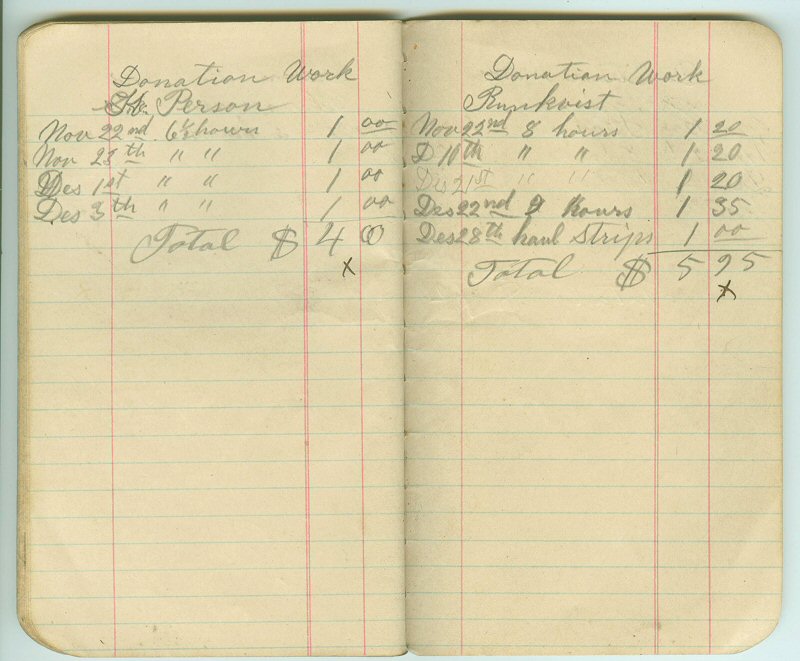 Donation Work
Person
Nov 22nd 6½ hours 1 00
Nov 23th " " 1 00
Des 1st " " 1 00
Des 3th " " 1 00
Total $ 4 00
x
Donation Work
Runkvist
Nov 22nd 8 hours 1 20
D 10th " " 1 20
Des 21st " " 1 20
Des 22nd 9 hours 1 35
Des 28th haul strips 1 00
Total $ 5 95
x